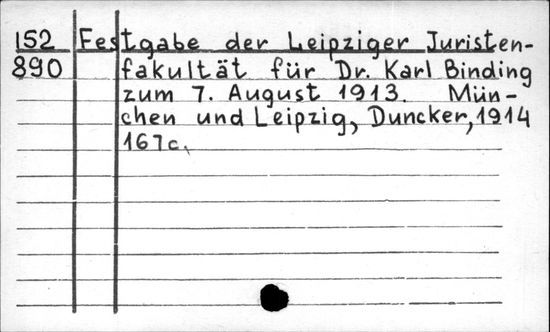 152 Festgabe der Leipziger Juristen-
890 fakultät für Dr. Karl Binding
zum 7. August 1913. Mün-
chen und Leipzig, Duncker, 1914
167c.